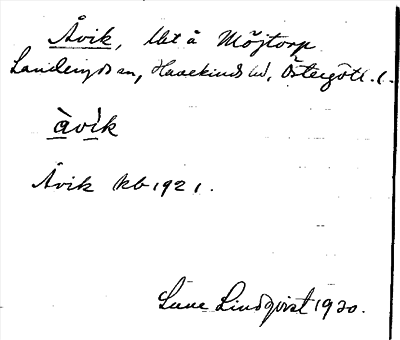 Åvik, lht å Möjtorp
Landeryds sn, Hanekinds hd, Östergötl. l.
àvìk
Åvik kb 1921.
Sune Lindqvist 1930.